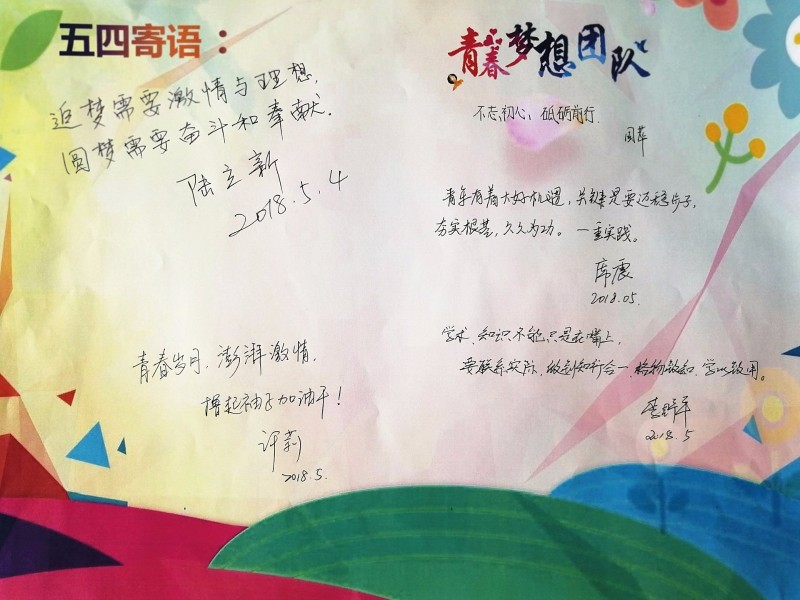 五四寄语：
追梦需要激情与理想，
圆梦需要奋斗和奉献．
陆立新
2018.5.4
青春岁月，澎湃激情，
撸起袖子加油干！
许莉
2018.5.
青春梦想团队
不忘初心，砥砺前行．
青年有着大好机遇，关键是要迈稳步子，
夯实根基，久久为功。一重实践。
席震
2018.05.
学术、知识不能只是在嘴上，
要联系实际，做到知行合一、格物致知、学以致用。
2018.5